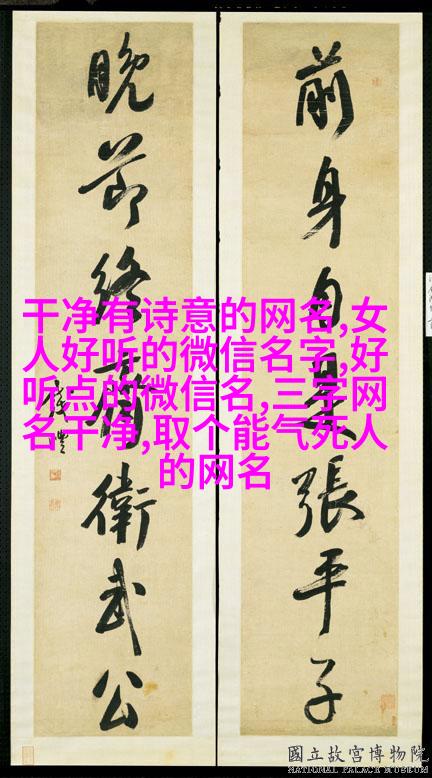 前身自是張平子
晚節終衛武公
干净有诗意的网名,女
人好听的微信名字,好
听点的微信名,三字网
名干净,取个能气死人
的网名
國立故宮博物院
NATIONAL PALACE MUSEUM